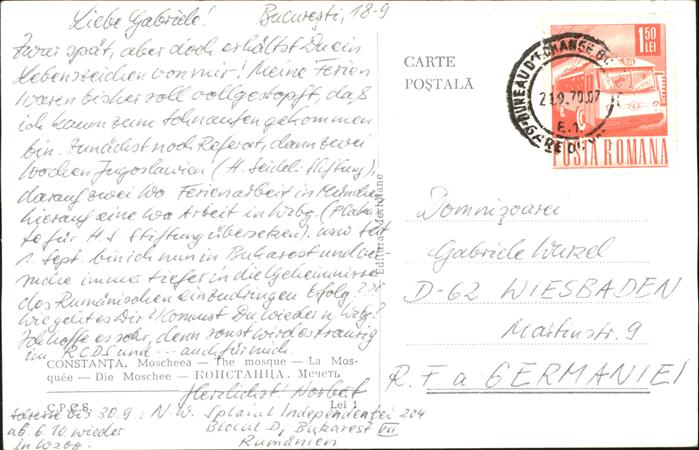 Liebe Gabriele! București, 18-9
Zwar spät, aber doch erhältst Du ein
Lebenszeichen von mir! Meine Ferien
waren bisher voll vollgestopft, daß
ich kaum zum Schnaufen gekommen
bin. Zunächst noch Referat, dann zwei
Wochen Jugoslawien (H. Seidel-Stiftung),
darauf zwei Wo Ferienarbeit in München
hierauf eine Wo Arbeit in Wzbg. (Plaka-
te für H.S Stiftung übersetzen). usw Seit
1. Sept bin ich nun in Bukarest und ver-
suche immer tiefer in die Geheimnisse
des Rumänischen einzudringen Erfolg??
Wie geht es Dir? Kommst Du wieder n. Wzbg?
Ich hoffe es sehr, denn sonst wird es traurig
im RCDS und --- auch für mich.
CONSTANȚA. Moscheea — The mosque — La Mos-
quée — Die Moschee — КОНСТАНЦА. Мечеть
Herzlichst Norbert
C.P.C.S. Lei 1
Adresse bis 30.9.: N.W. Splaiul Independentei 204
ab 6.10. wieder Blocul D, Bukarest VII
in Wzbg. Rumänien
Editura Meridiane
CARTE
POȘTALĂ
1,50
LEI
POSTA ROMANA
BUREAU D'ECHANGE
21.9.70.07
E.1.
GARE DU
Domnișoarei
Gabriele Wurzel
D-62 WIESBADEN
Martinstr. 9
R. F. a GERMANIEI